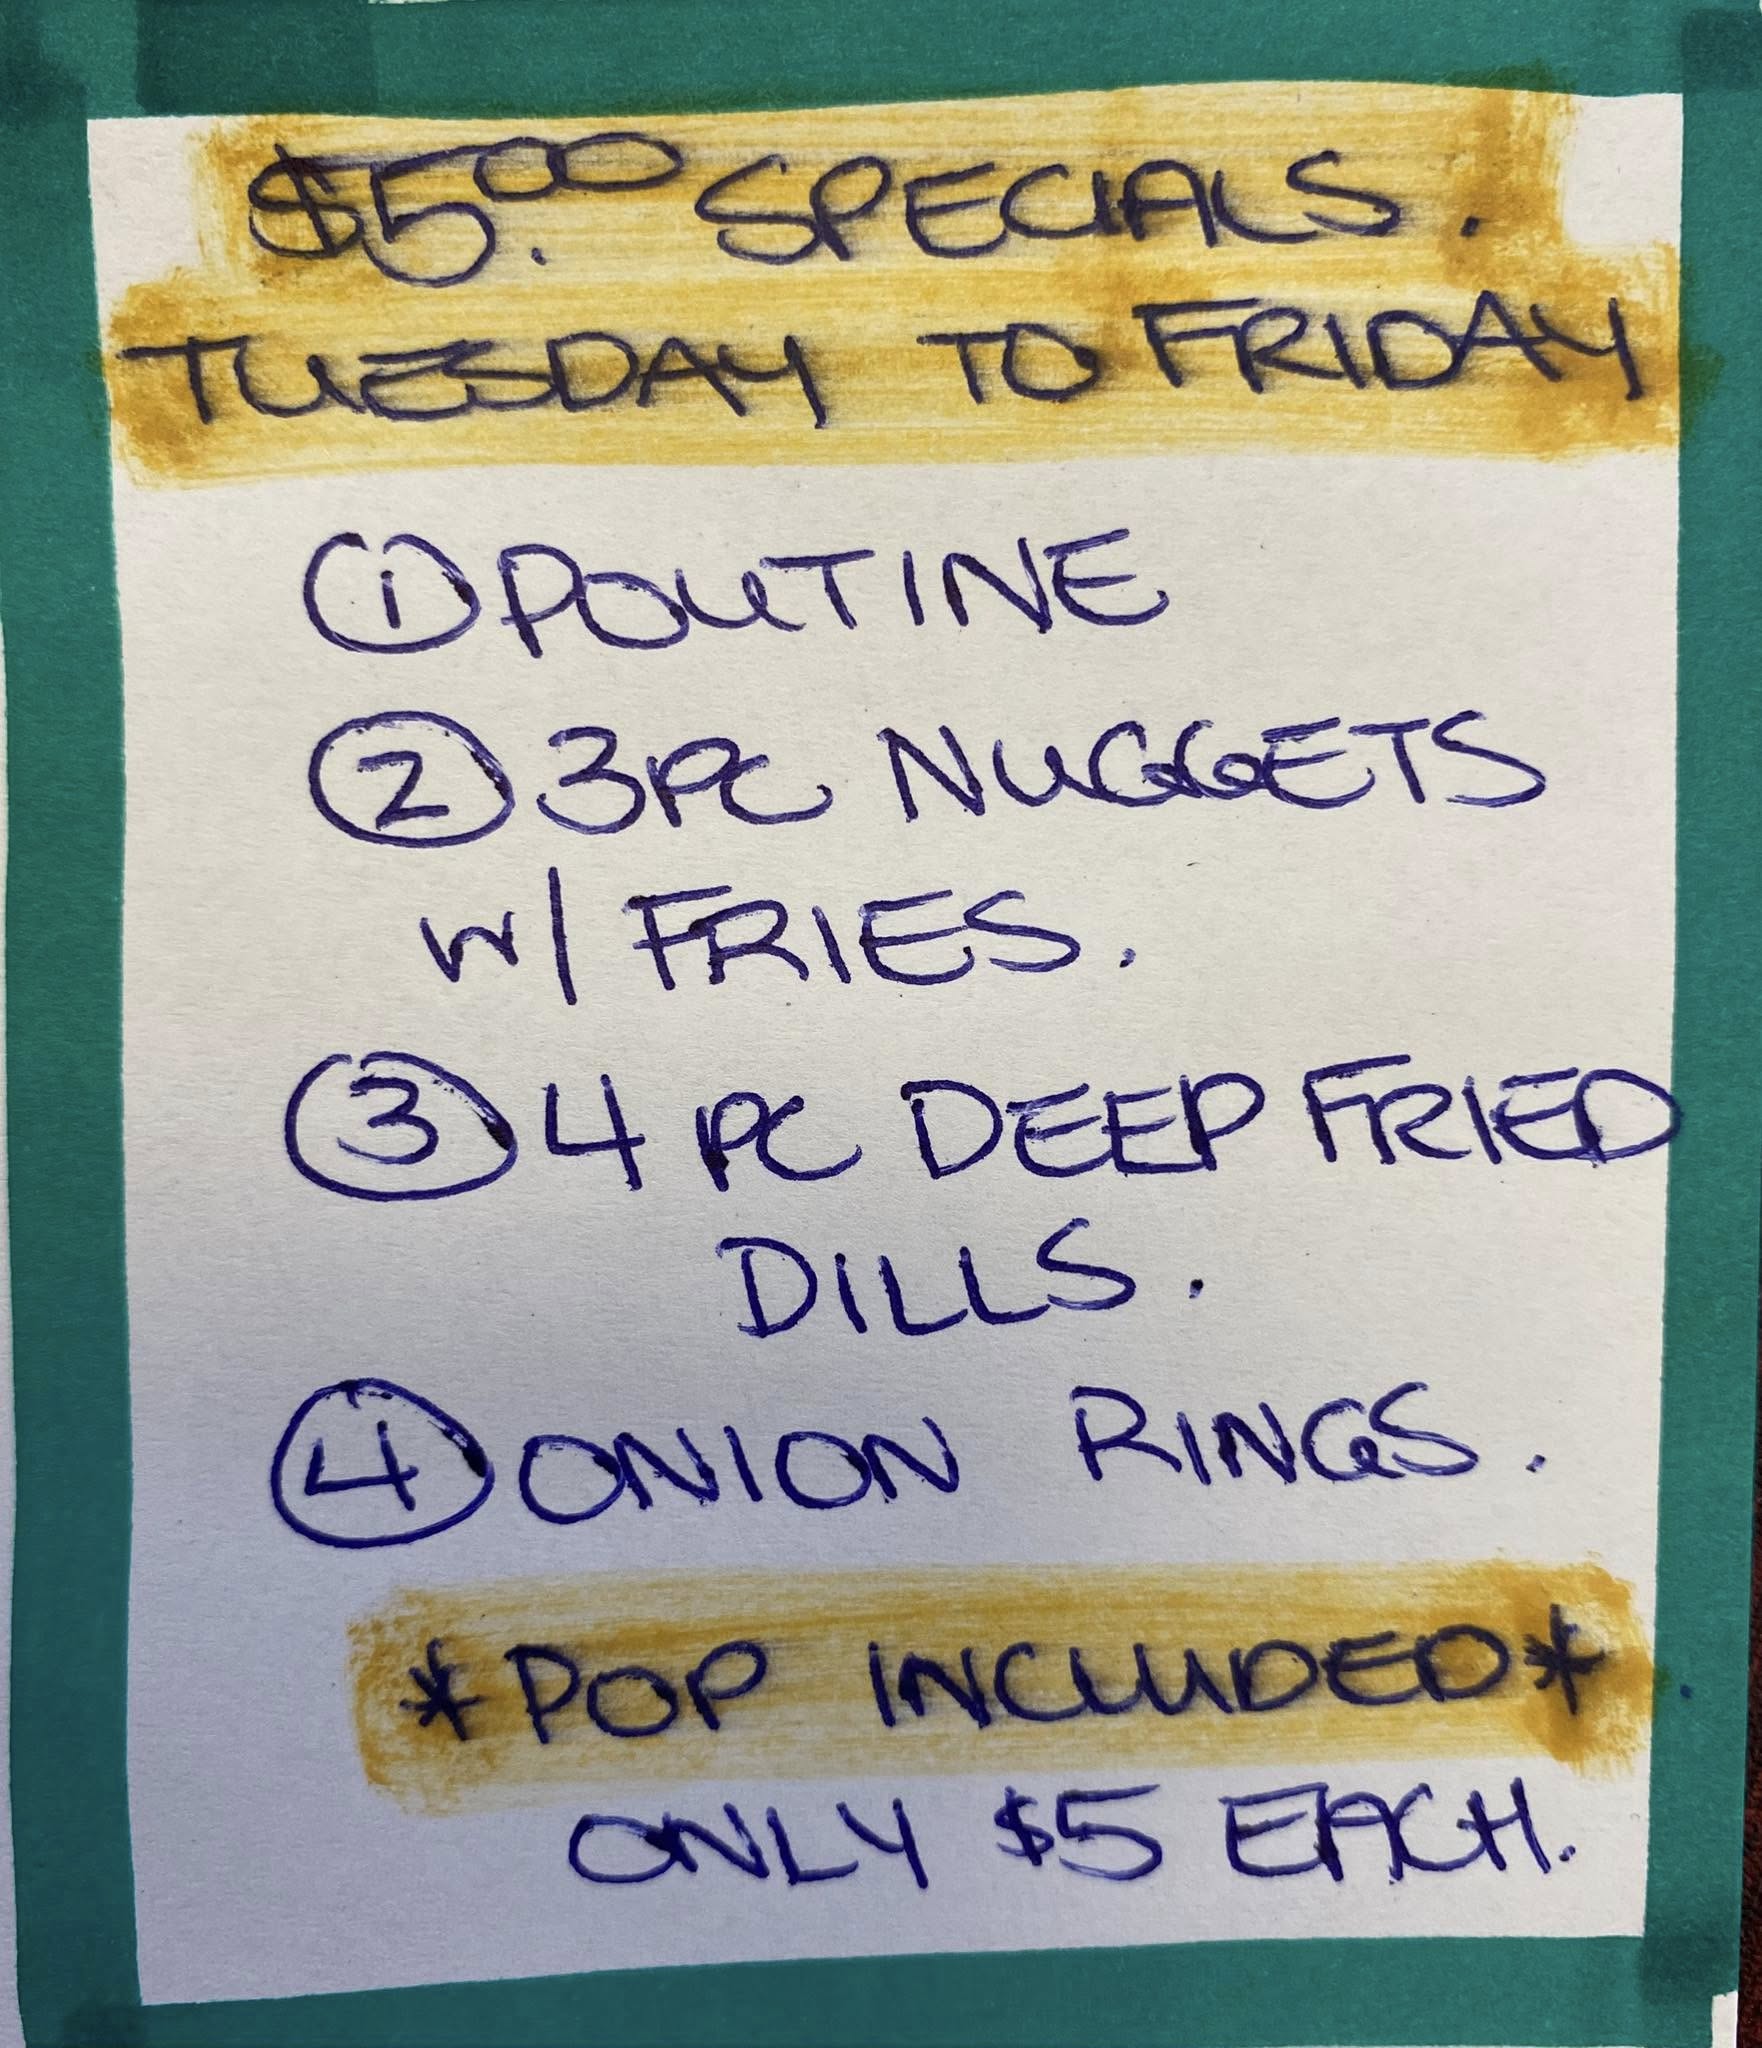 $5.00 SPECIALS.
TUESDAY TO FRIDAY
1 POUTINE
2 3PC NUGGETS
W/ FRIES.
3 4 PC DEEP FRIED
DILLS.
4 ONION RINGS.
*POP INCLUDED*
ONLY $5 EACH.